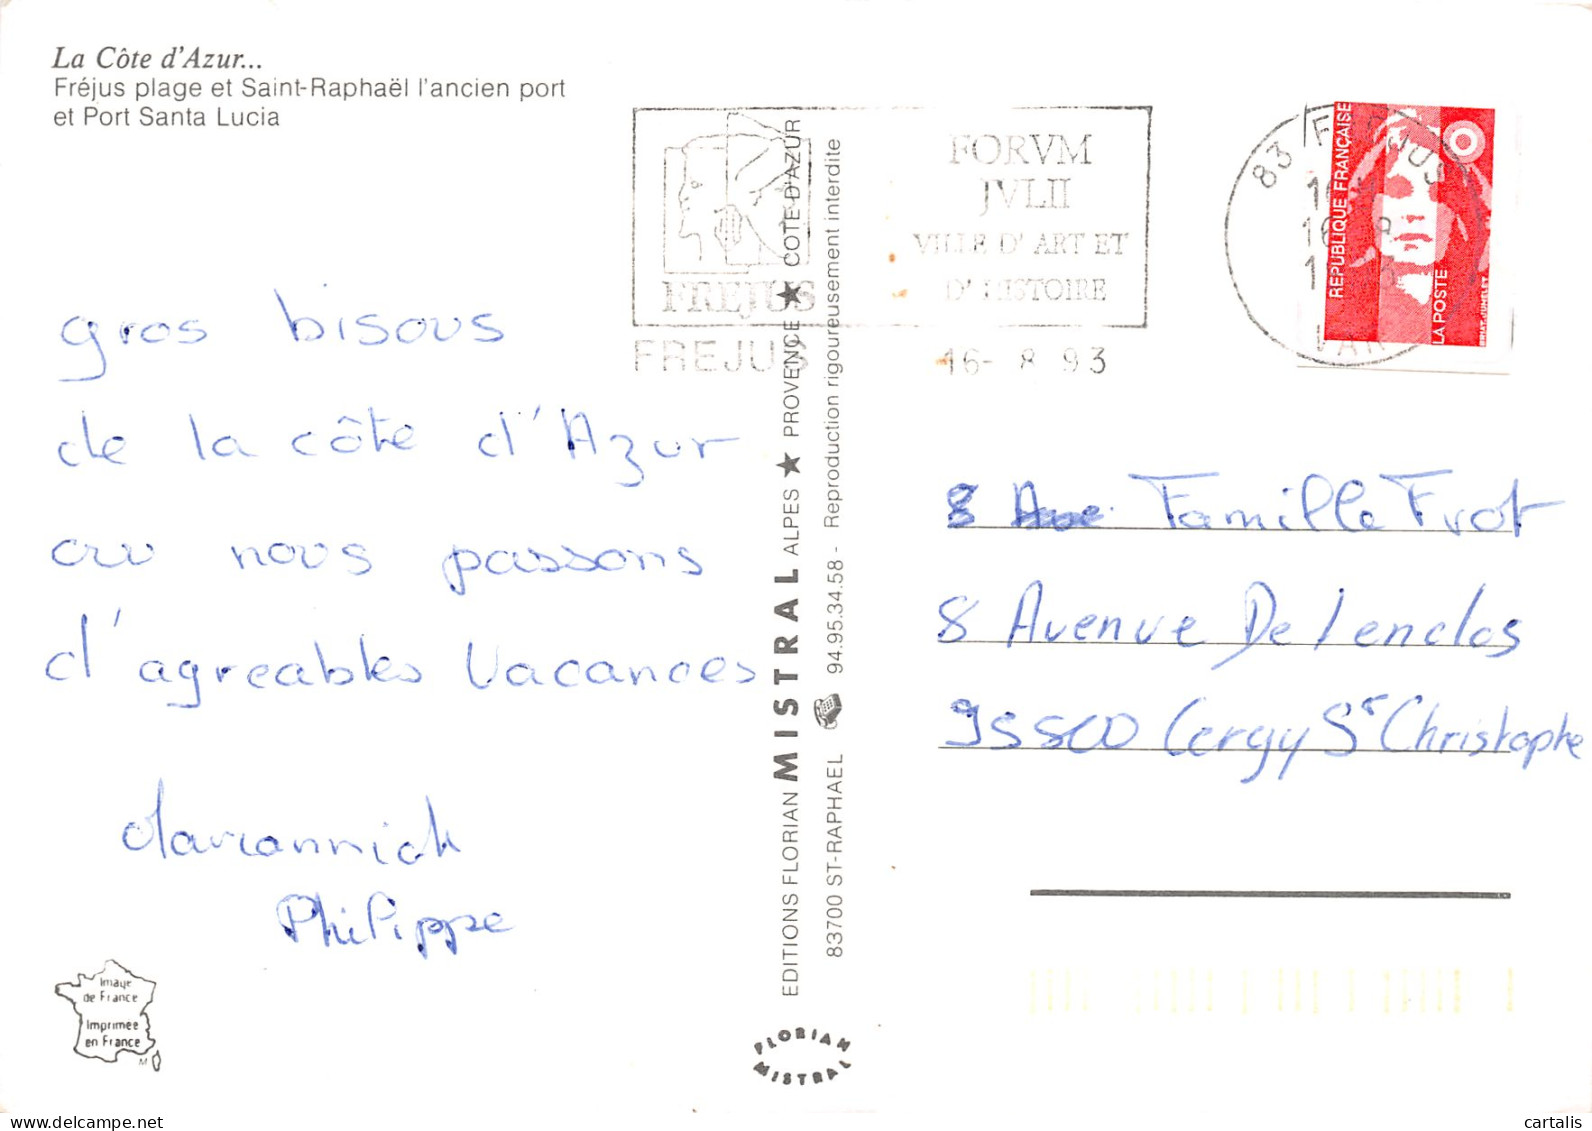 La Côte d'Azur...
Fréjus plage et Saint-Raphaël l'ancien port
et Port Santa Lucia
gros bisous
de la côte d'Azur
ou nous passons
d'agreables Vacances
Philippe
Image
de France
Imprimée
en France
FREJUS
FORVM
JVLII
VILLE D'ART ET
D'HISTOIRE
FREJUS 16- 8 93
EDITIONS FLORIAN MISTRAL ALPES ★ PROVENCE ★ COTE D'AZUR
83700 ST-RAPHAEL ☎ 94.95.34.58 - Reproduction rigoureusement interdite
FLORIAN
MISTRAL
83 FREJUS
VAR
REPUBLIQUE FRANÇAISE
LA POSTE
8 Ave Famille Frot
8 Avenue De lenclos
95800 Cergy St Christophe
cartalis